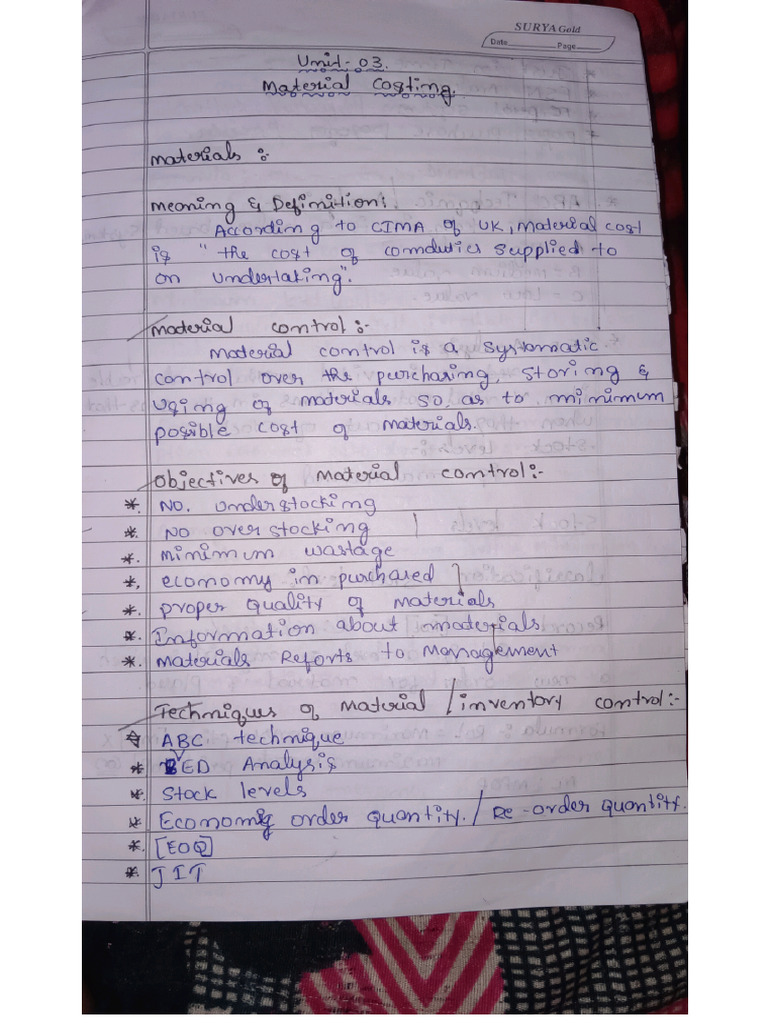 SURYA Gold
Date Page
Unit-03.
Material Costing.
Materials :-
Meaning & Definition:
According to CIMA of UK, Material cost
is "the cost of comduties supplied to
on undertaking".
Material control :-
Material control is a systematic
control over the purchasing, storing &
Using of materials so as to minimum
possible cost of materials.
Objectives of Material control:-
*. No. Understocking
*. No over stocking
*. Minimum wastage
*. economy in purchased
*. proper quality of materials
*. Information about materials
*. Materials Reports to Management
Techniques of Material / inventory control:-
* ABC technique
* VED Analysis
* Stock levels
* Economic order quantity. / Re-order quantity.
*. [EOQ]
*. JIT